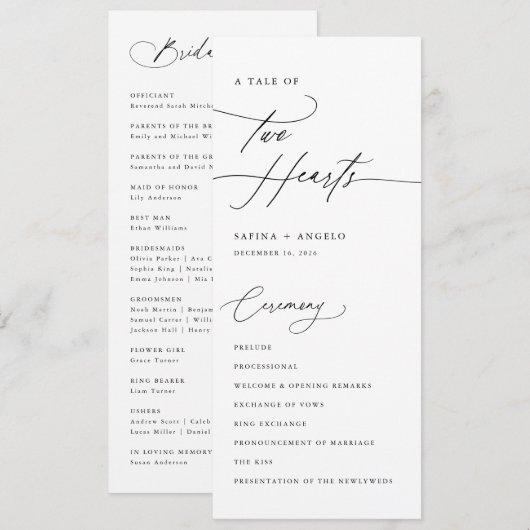 Brida
OFFICIANT
Reverend Sarah Mitche
PARENTS OF THE BR
Emily and Michael Wi
PARENTS OF THE GR
Samantha and David N
MAID OF HONOR
Lily Anderson
BEST MAN
Ethan Williams
BRIDESMAIDS
Olivia Parker | Ava C
Sophia King | Natalie
Emma Johnson | Mia
GROOMSMEN
Noah Martin | Benjam
Samuel Carter | William
Jackson Hall | Henry
FLOWER GIRL
Grace Turner
RING BEARER
Liam Turner
USHERS
Andrew Scott | Caleb
Lucas Miller | Daniel
IN LOVING MEMORY
Susan Anderson
A TALE OF
Two
Hearts
SAFINA + ANGELO
DECEMBER 16, 2026
Ceremony
PRELUDE
PROCESSIONAL
WELCOME & OPENING REMARKS
EXCHANGE OF VOWS
RING EXCHANGE
PRONOUNCEMENT OF MARRIAGE
THE KISS
PRESENTATION OF THE NEWLYWEDS